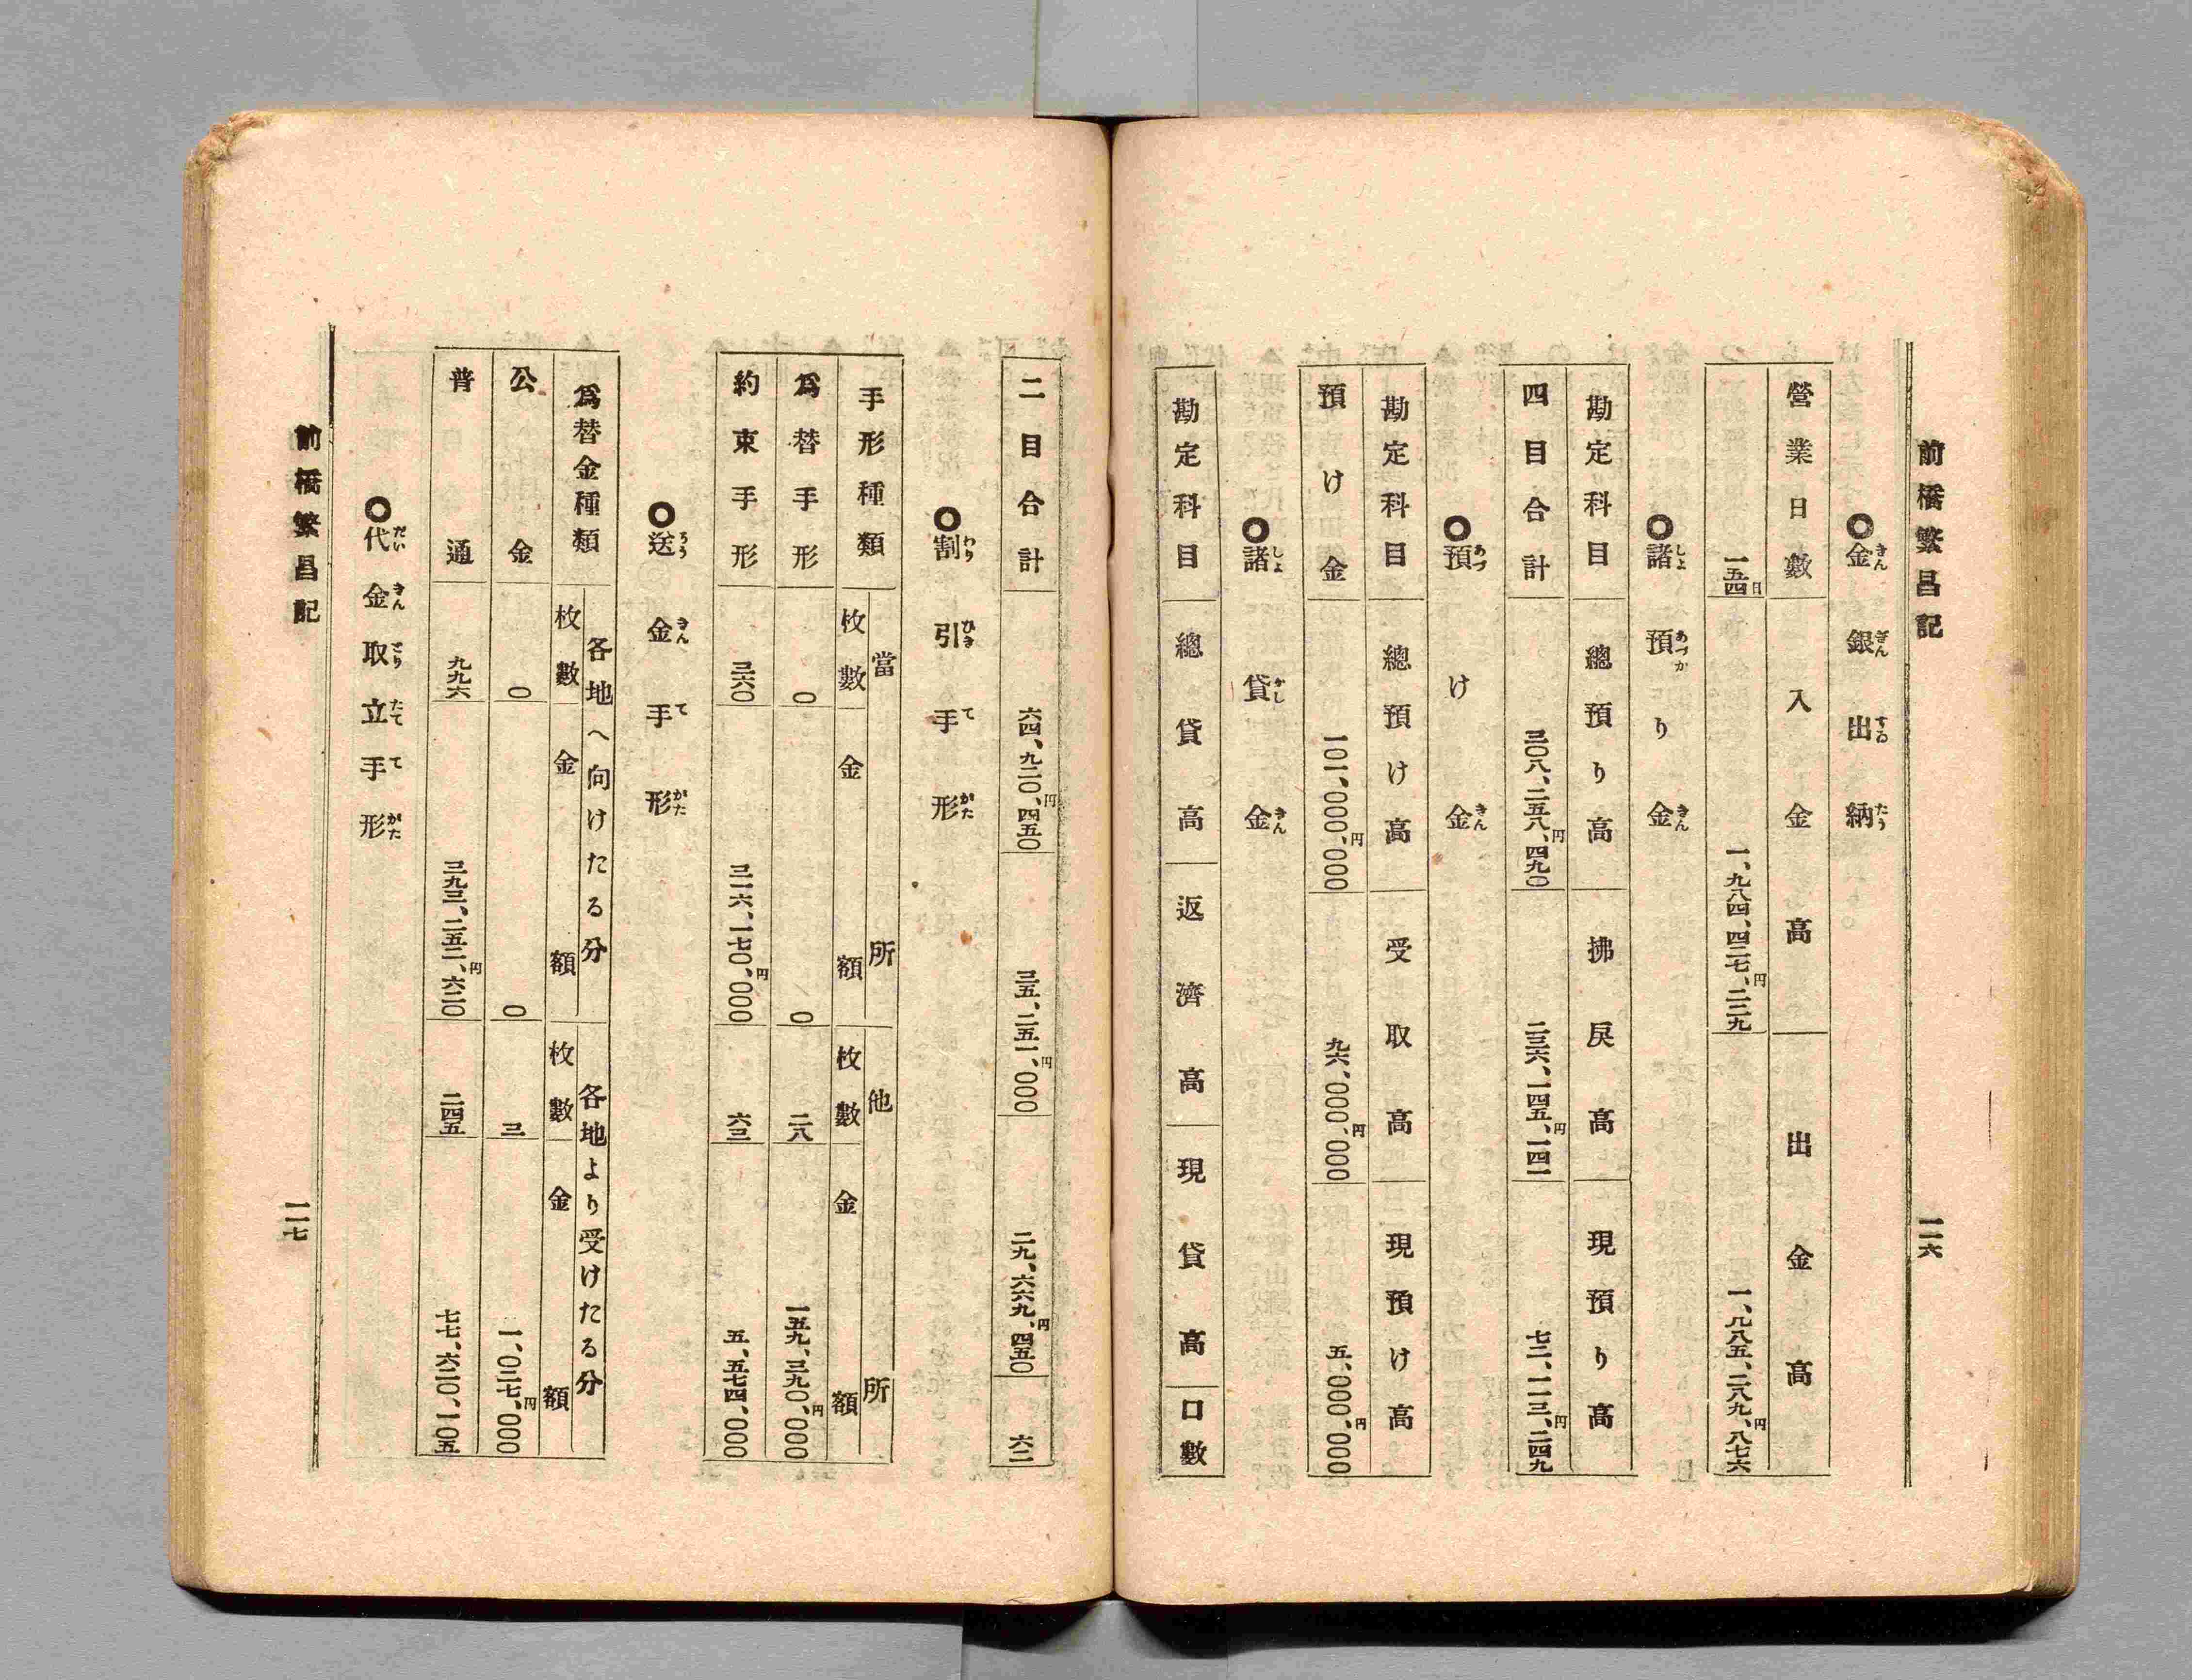 前橋繁昌記
一一六
◎金銀出納
きんぎんすゐたう
營業日數 入金高 出金高
一五四日 一、九八四、四二七、円二二九 一、八八五、二八九、円八七六
◎諸預り金
しよあづかきん
勘定科目 總預り高 拂戾高 現預り高
四目合計 三〇八、二五八、円四九〇 二三六、一四五、円二四一 七二、一一三、円二四九
◎預け金
あづきん
勘定科目 總預け高 受取高 現預け高
預け金 一〇一、〇〇〇、円〇〇〇 九六、〇〇〇、円〇〇〇 五、〇〇〇、円〇〇〇
◎諸貸金
しよかしきん
勘定科目 總貸高 返濟高 現貸高 口數
二目合計 六四、九二〇、円四五〇 三五、二五一、円〇〇〇 二九、六六九、円四五〇 六二
◎割引手形
わりひきてがた
手形種類 當所 他所
枚數 金額 枚數 金額
爲替手形 〇 〇 二八 一五九、三九〇、円〇〇〇
約束手形 三六〇 三一六、一七〇、円〇〇〇 六三 五、五七四、〇〇〇
◎送金手形
そうきんてがた
爲替金種類 各地へ向けたる分 各地より受けたる分
枚數 金額 枚數 金額
公金 〇 〇 三 一、〇二七、円〇〇〇
普通 九九六 三九三、二五二、円六二〇 二四五 七七、六二〇、一〇五
◎代金取立手形
だいきんとりたててがた
前橋繁昌記
一一七